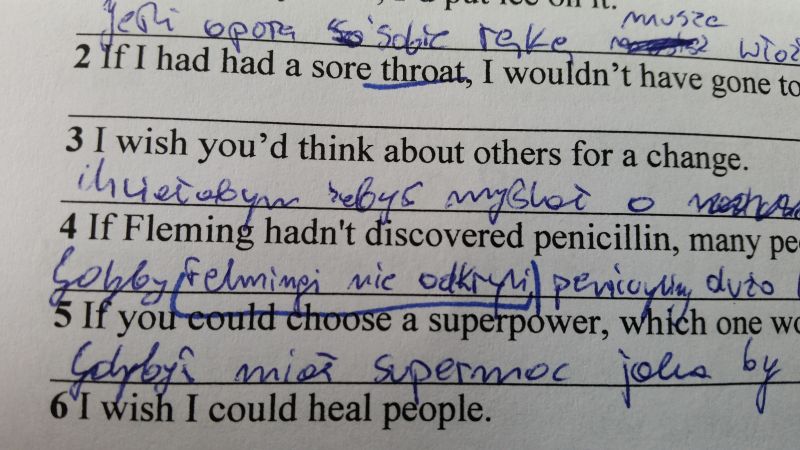 , I'd put ice on it.
jeśli oparą sobie rękę muszę włoż
2 If I had had a sore throat, I wouldn't have gone to
3 I wish you'd think about others for a change.
żebyś myślał o
4 If Fleming hadn't discovered penicillin, many pe
Gdyby Felmingi nie odkryli penicyliny dużo
5 If you could choose a superpower, which one wo
Gdybyś miał supermoc jaka by
6 I wish I could heal people.